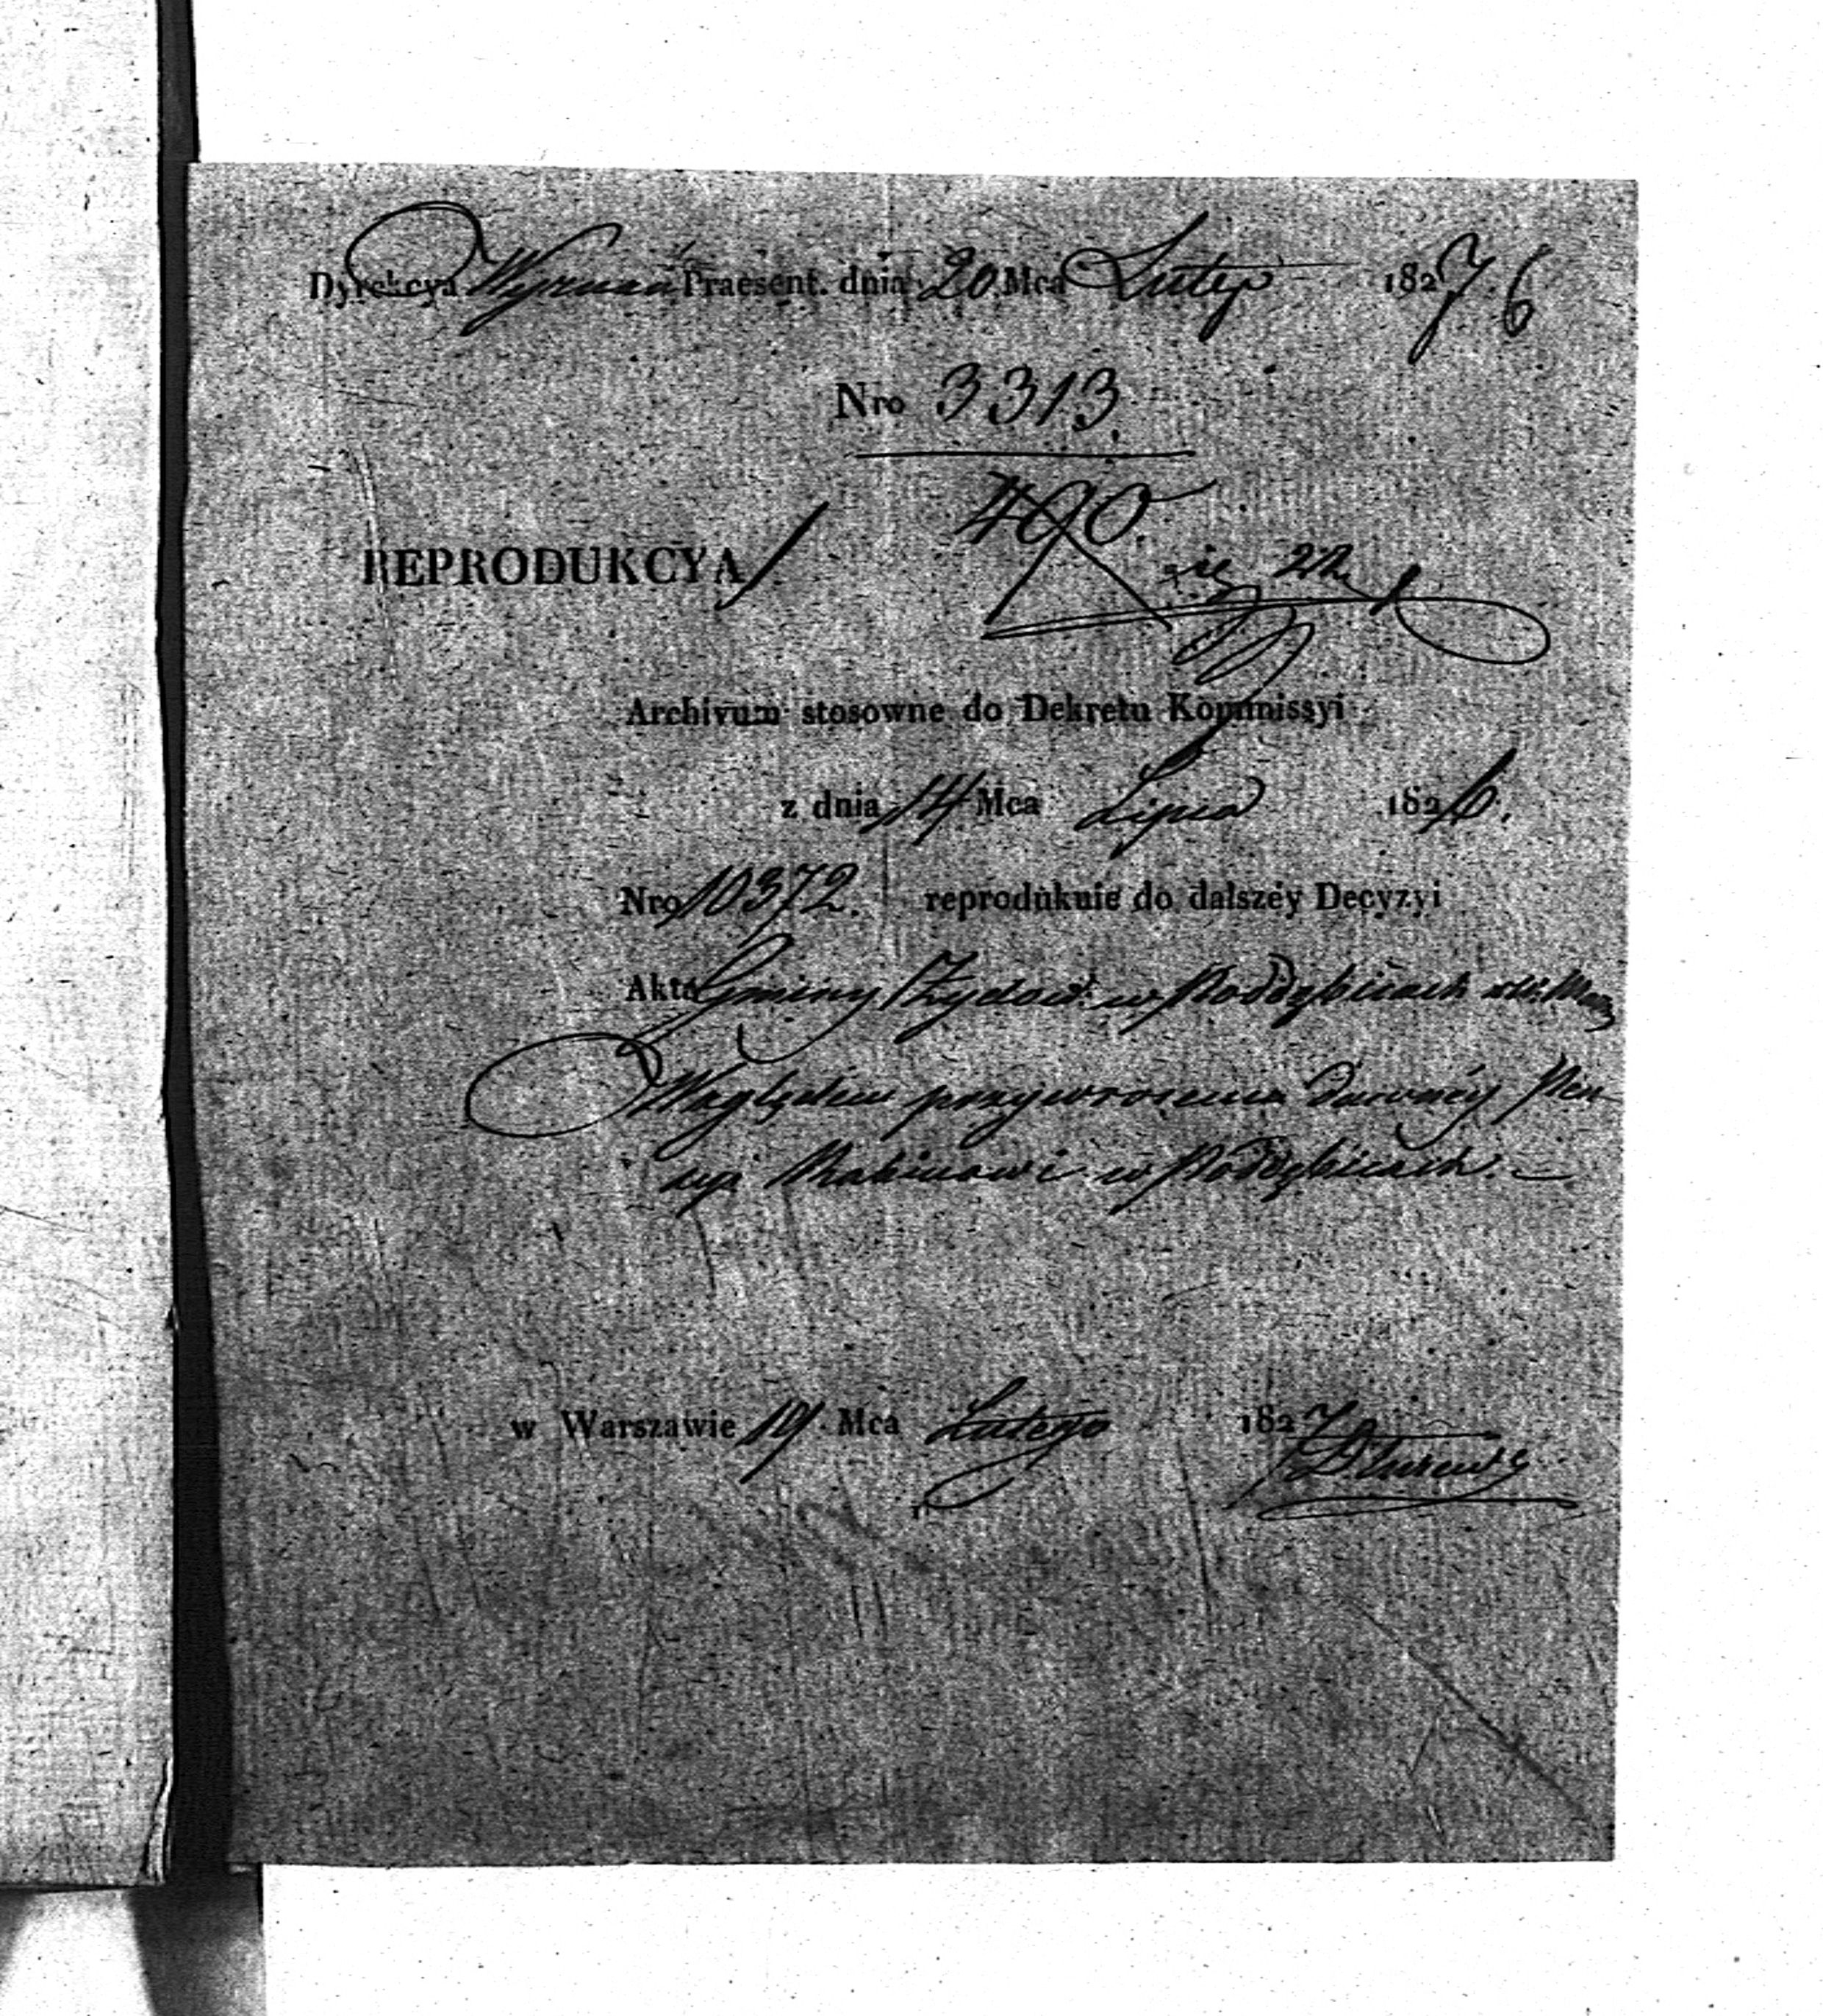 Dyrekcya Wyznań Praesent. dnia 20 Mca Luteg 1827. 6
Nro 3313.
490.
REPRODUKCYA
Archivum stosowne do Dekretu Kommissyi
z dnia 14 Mca Lipca 1826.
Nro 10372. reprodukuie do dalszéy Decyzyi
Akta Gminy Żydow: w Poddębicach
Względem przywrocenia dawnéy Pen
syi Rabinowi w Poddębicach. —
w Warszawie 19 Mca Lutego 1827